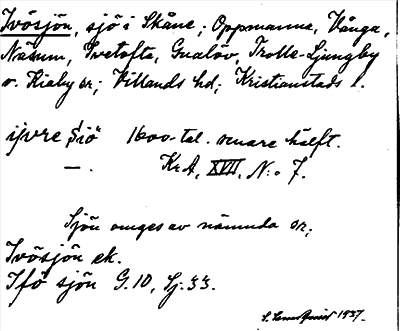 Ivösjön, sjö i Skåne; Oppmanna, Vånga,
Näsum, Ivetofta, Gualöv, Trolle-Ljungby
o. Kiaby sr; Villands hd; Kristianstads l.
ijvre Siö 1600-tal. senare hälft.
—. Kr.A, XVII, N:o 7.
Sjön omges av nämnda sr;
Ivösjön ek.
Ifö sjön G.10, Sj. 33.
1937.